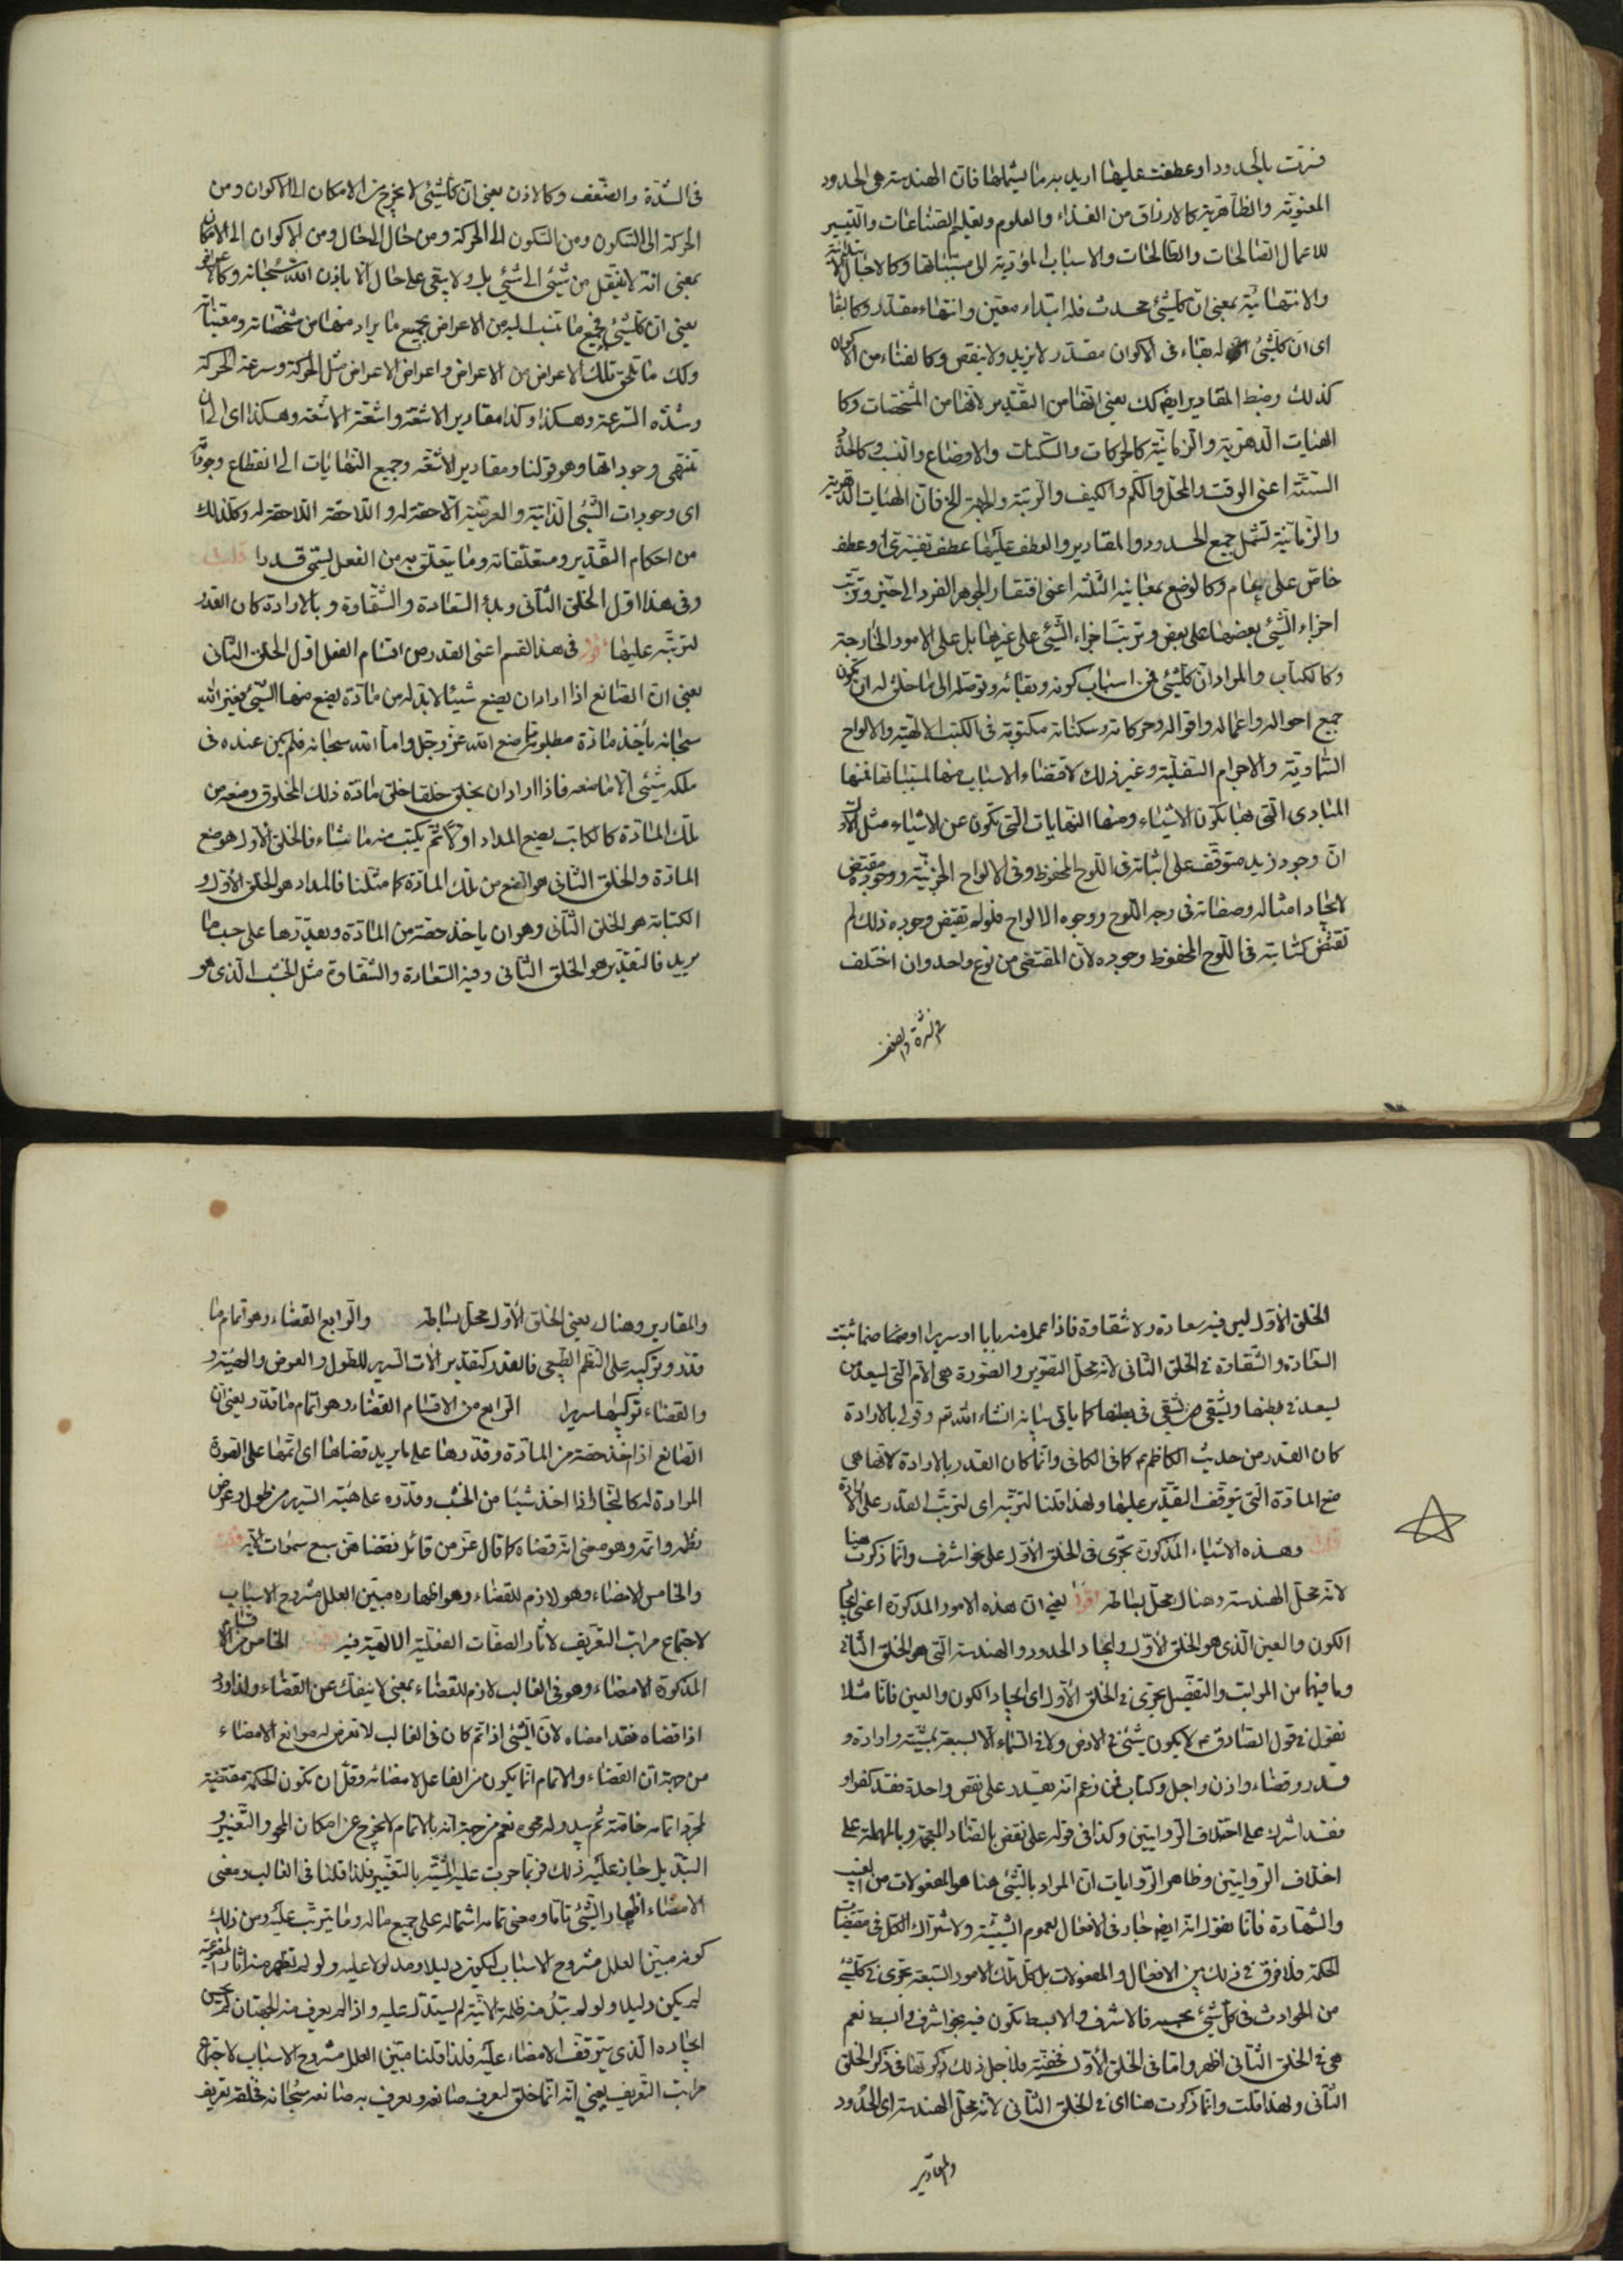 فسّرت بالحدود او عطفت عليها اريد به ما يشملها فانّ الهندسة هي الحدود
المعنوية والظاهرية كالارزاق من الغذاء والعلوم وتعليم الصناعات والتيسير
للاعمال الصالحات والطالحات والاسباب المؤدية الى مسبباتها وكالاجال
والانتهائية بمعنى ان كلشيئ محدث فله ابتداء معين وانتهاء مقدر وكالبقا
اى ان كلشيئ له بقاء فى الاكوان مقدّر لا يزيد ولا ينقص وكالفناء من الاكوان
كذلك وضبط المقادير ايضا كك يعنى انها من التقدير لانها من المشخصات وكا
الهيئات الدهرية والزمانية كالحركات والسكنات والاوضاع والنسب وكالحدود
الستة اعنى الوقت والمحل والكم والكيف والرتبة والجهة الخ فان الهيئات الدهرية
والزمانية تشمل جميع الحدود والمقادير والعطف عليها عطف تفسيرى او عطف
خاص على عام وكالوضع بمعانيه الثلثة اعنى افتقار الجوهر الفرد الى حيز وترتب
اجزاء الشيئ بعضها على بعض وترتب اجزاء الشيئ على غيرها بل على الامور الخارجة
وكالكتاب والمراد ان كلشيئ فمن اسباب كونه وبقائه وتوصله الى ما خلق له ان تكون
جميع احواله واعماله واقواله وحركاته وسكناته مكتوبة فى الكتب الالهية والالواح
السماوية والاجرام السفلية وغير ذلك لاقتضاء الاسباب منها لمسبباتها فمنها
المبادى التى بها تكون الاشياء ومنها النهايات التى تكون عن الاشياء مثل الاول
ان وجود زيد متوقف على اثباته فى اللوح المحفوظ وفى الالواح الجزئية ووجوده مقتضى
لايجاد امثاله وصفاته فى وجه اللوح ووجوه الالواح فلو لم يقتض وجوده ذلك لم
تقتض كتابته فى اللوح المحفوظ وجوده لان المقتضى من نوع واحد وان اختلف
فى الشدة والضعف
فى الشدّة والضعف وكالاذن يعنى ان كلشيئ لا يخرج من الامكان الى الاكوان ومن
الحركة الى السكون ومن السكون الى الحركة ومن حال الى حال ومن الاكوان الى الامكان
بمعنى انه لا ينتقل من شيئ الى شيئ بل ولا يبقى على حال الا باذن الله سبحانه وكالاعراض
يعنى ان كلشيئ فجميع ما تنسب اليه من الاعراض بجميع ما يراد منها من مشخصاته ومعيناته
وكك ما تلحق تلك الاعراض من الاعراض واعراض الاعراض مثل الحركة وسرعة الحركة
وشدة السرعة وهكذا وكذا مقادير الاشعة واشعة الاشعة وهكذا اى الى ان
تنتهى وجوداتها وهو قولنا ومقادير الاشعة وجميع النهايات الى انقطاع وجوداته
اى وجودات الشيئ الذاتية والعرضية اللاحقة له واللاحقة للاحقة له وكذلك
من احكام التقدير ومتعلقاته وما يتعلق به من الفعل يسمى قدرا قلت
وفى هذا اوّل الخلق الثانى وبدؤ السعادة والشقاوة وبالارادة كان القدر
لترتّبه عليها اقول فى هذا القسم اعنى القدر من اقسام الفعل اول الخلق الثانى
يعنى ان الصانع اذا اراد ان يصنع شيئا لابد له من مادة يصنع منها الشيئ فغير الله
سبحانه ياخذ مادة مطلوبه مما صنع الله عز وجل واما الله سبحانه فلم يكن عنده فى
ملكه شيئى الا ما صنعه فاذا اراد ان يخلق خلقا خلق مادة ذلك المخلوق وصنعه من
تلك المادة كالكاتب يصنع المداد اولا ثم يكتب منه ما شاء فالخلق الاول هو صنع
المادة والخلق الثانى هو الصنع من تلك المادة كما مثلنا فالمداد هو الخلق الاول و
الكتابة هو الخلق الثانى وهو ان ياخذ حصة من المادة ويقدّرها على حسب ما
يريد فالتقدير هو الخلق الثانى وفيه السعادة والشقاوة مثل الخشب الذى هو
الخلق الاول ليس فيه سعادة ولا شقاوة فاذا عمل منه بابا او سريرا او صنما ثبتت
السعادة والشقاوة فى الخلق الثانى لانه محل التصوير والصورة هى الام التى يسعد من
يسعد فى بطنها ويشقى من شقى فى بطنها كما ياتى بيانه انشاء الله تم وقولى بالارادة
كان القدر من حديث الكاظم ع كما فى الكافى وانما كان القدر بالارادة لانها هى
صنع المادة التى يتوقف التقدير عليها ولهذا قلنا لترتبه اى لترتب القدر على الارادة
قلت وهذه الاشياء المذكورة تجرى فى الخلق الاول على نحو اشرف وانما ذكرت هنا
لانه محل الهندسة وهناك محل بساطة اقول يعنى ان هذه الامور المذكورة اعنى ايجاد
الكون والعين الذى هو الخلق الاول وايجاد الحدود والهندسة التى هو الخلق الثانى
وما فيها من المراتب والتفصيل تجرى فى الخلق الاول اى ايجاد الكون والعين فانا مثلا
نقول فى قول الصادق ع لا يكون شيئ فى الارض ولا فى السماء الا بسبعة بمشية وارادة و
قدر وقضاء واذن واجل وكتاب فمن زعم انه يقدر على نقص واحدة فقد كفر او
فقد اشرك على اختلاف الروايتين وكذا فى قوله على نقض بالضاد المعجمة وبالمهملة على
اختلاف الروايتين وظاهر الروايات ان المراد بالشيئ هنا هو المفعولات من الغيب
والشهادة فانا نقول انه ايضا جار فى الافعال لعموم الشيئية ولاشتراك الكل فى مقتضيات
الحكمة فلا فرق فى ذلك بين الافعال والمفعولات بل كل تلك الامور السبعة تجرى فى كلشيئ
من الحوادث فى كل شيئ بحسبه فالاشرف والابسط تكون فيه بنحو اشرف وابسط نعم
هى فى الخلق الثانى اظهر واما فى الخلق الاول فخفية فلاجل ذلك ذكرتها فى ذكر الخلق
الثانى ولهذا قلت وانما ذكرت هنا اى فى الخلق الثانى لانه محل الهندسة اى الحدود
والمقادير
والمقادير وهناك يعنى الخلق الاول محل بساطة والرابع القضاء وهو اتمام ما
قدّر وتركيبه على النظم الطبيعى فالقدر كتقدير الات السرير للطول والعرض والهيئة و
والقضاء تركيبها سريرا الرابع من الاقسام القضاء وهو اتمام ما قدّر يعنى ان
الصانع اذا اخذ حصة من المادة وقدّرها على ما يريد قضاها اى اتمّها على الصورة
المرادة له كالنجار اذا اخذ شيئا من الخشب وقدّره على هيئة السرير من طول وعرض
نظمه واتمه وهو معنى انه قضاه كما قال عز من قائل فقضاهن سبع سموات الاية قلت
والخامس الامضاء وهو لازم للقضاء وهو اظهاره مبيّن العلل مشروح الاسباب
لاجتماع مراتب التعريف لاثار الصفات الفعلية الالهية فيه اقول الخامس من الاقسام
المذكورة الامضاء وهو فى الغالب لازم للقضاء بمعنى لا ينفك عن القضاء
اذا قضاه فقد امضاه لان الشيئ اذا تم كان فى الغالب لا تعرض له موانع الامضاء
من جهة ان القضاء والاتمام انما يكون من الفاعل لامضائه وقلّ ان تكون الحكمة مقتضية
لمجرد اتمامه خاصة ثم يبدو له محوه نعم من جهة انه بالاتمام لا يخرج عن امكان المحو والتغيير و
التبديل جاز عليه ذلك فربما جرت عليه المشية بالتغيير فلذا قلنا فى الغالب ومعنى
الامضاء اظهار الشيئ تاما ومعنى تمامه اشتماله على جميع ما له وما يترتب عليه ومن ذلك
كونه مبين العلل مشروح الاسباب ليكون دليلا ومدلولا عليه ولو لم تظهر منه اثار
لم يكن دليلا ولو لم تبد منه ظلمة الانية لم يستدل عليه واذا لم يعرف منه الجهتان لم يحسن
ايجاده الذى يتوقف الامضاء عليه فلذا قلنا مبيّن العلل مشروح الاسباب لاجتماع
مراتب التعريف يعنى انه انما خلق ليعرف صانعه ويعرف به صانعه سبحانه فخلقه تعريف